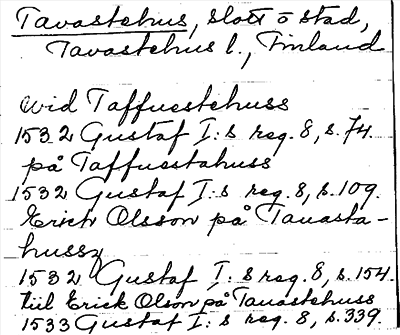 Tavastehus, slott o stad,
Tavastehus l., Finland
wid Taffuestehuss
1532 Gustaf I:s reg. 8, s. 74.
på Taffuestahuss
1532 Gustaf I:s reg. 8, s. 109.
Erich Olsson på Tauasta-
hussz
1532 Gustaf I:s reg. 8, s. 154.
till Erick Olson på Tauastehuss
1533 Gustaf I:s reg. 8, s. 339.